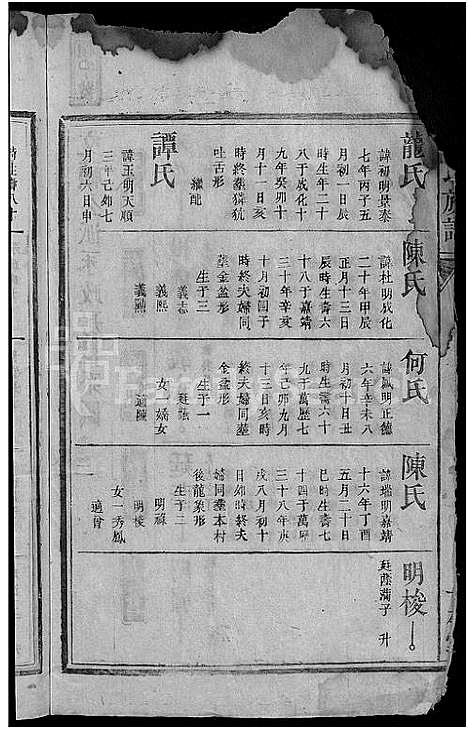 龍氏
諱初明景泰
七年丙子五
月初一日辰
時生壽二十
八于成化十
九年癸卯十
月十一日亥
時終塟獐㹶
吐舌形
繼配
譚氏
諱玉明天順
三年己卯七
月初六日申
陳氏
諱杜明成化
二十年甲辰
正月十三日
辰時生壽六
十八于嘉靖
三十年辛亥
十月初四子
時終夫婦同
塟金盆形
生于三
義志
義熙
何氏
諱鳳明正德
六年辛未八
月初十日丑
時生壽六十
九于萬歷七
年己卯九月
十三日亥時
終夫婦同塟
金盆形
生于一
女一嬌女
適陳
陳氏
諱瑞明嘉靖
十六年丁酉
五月二十日
巳時生壽七
十四于萬歷
三十八年庚
戌八月初十
日卯時終夫
婦同塟本村
後龍象形
生于二
明祿
明梭
女一秀鳳
適曾
明梭
廷蔭滿子
升
族譜